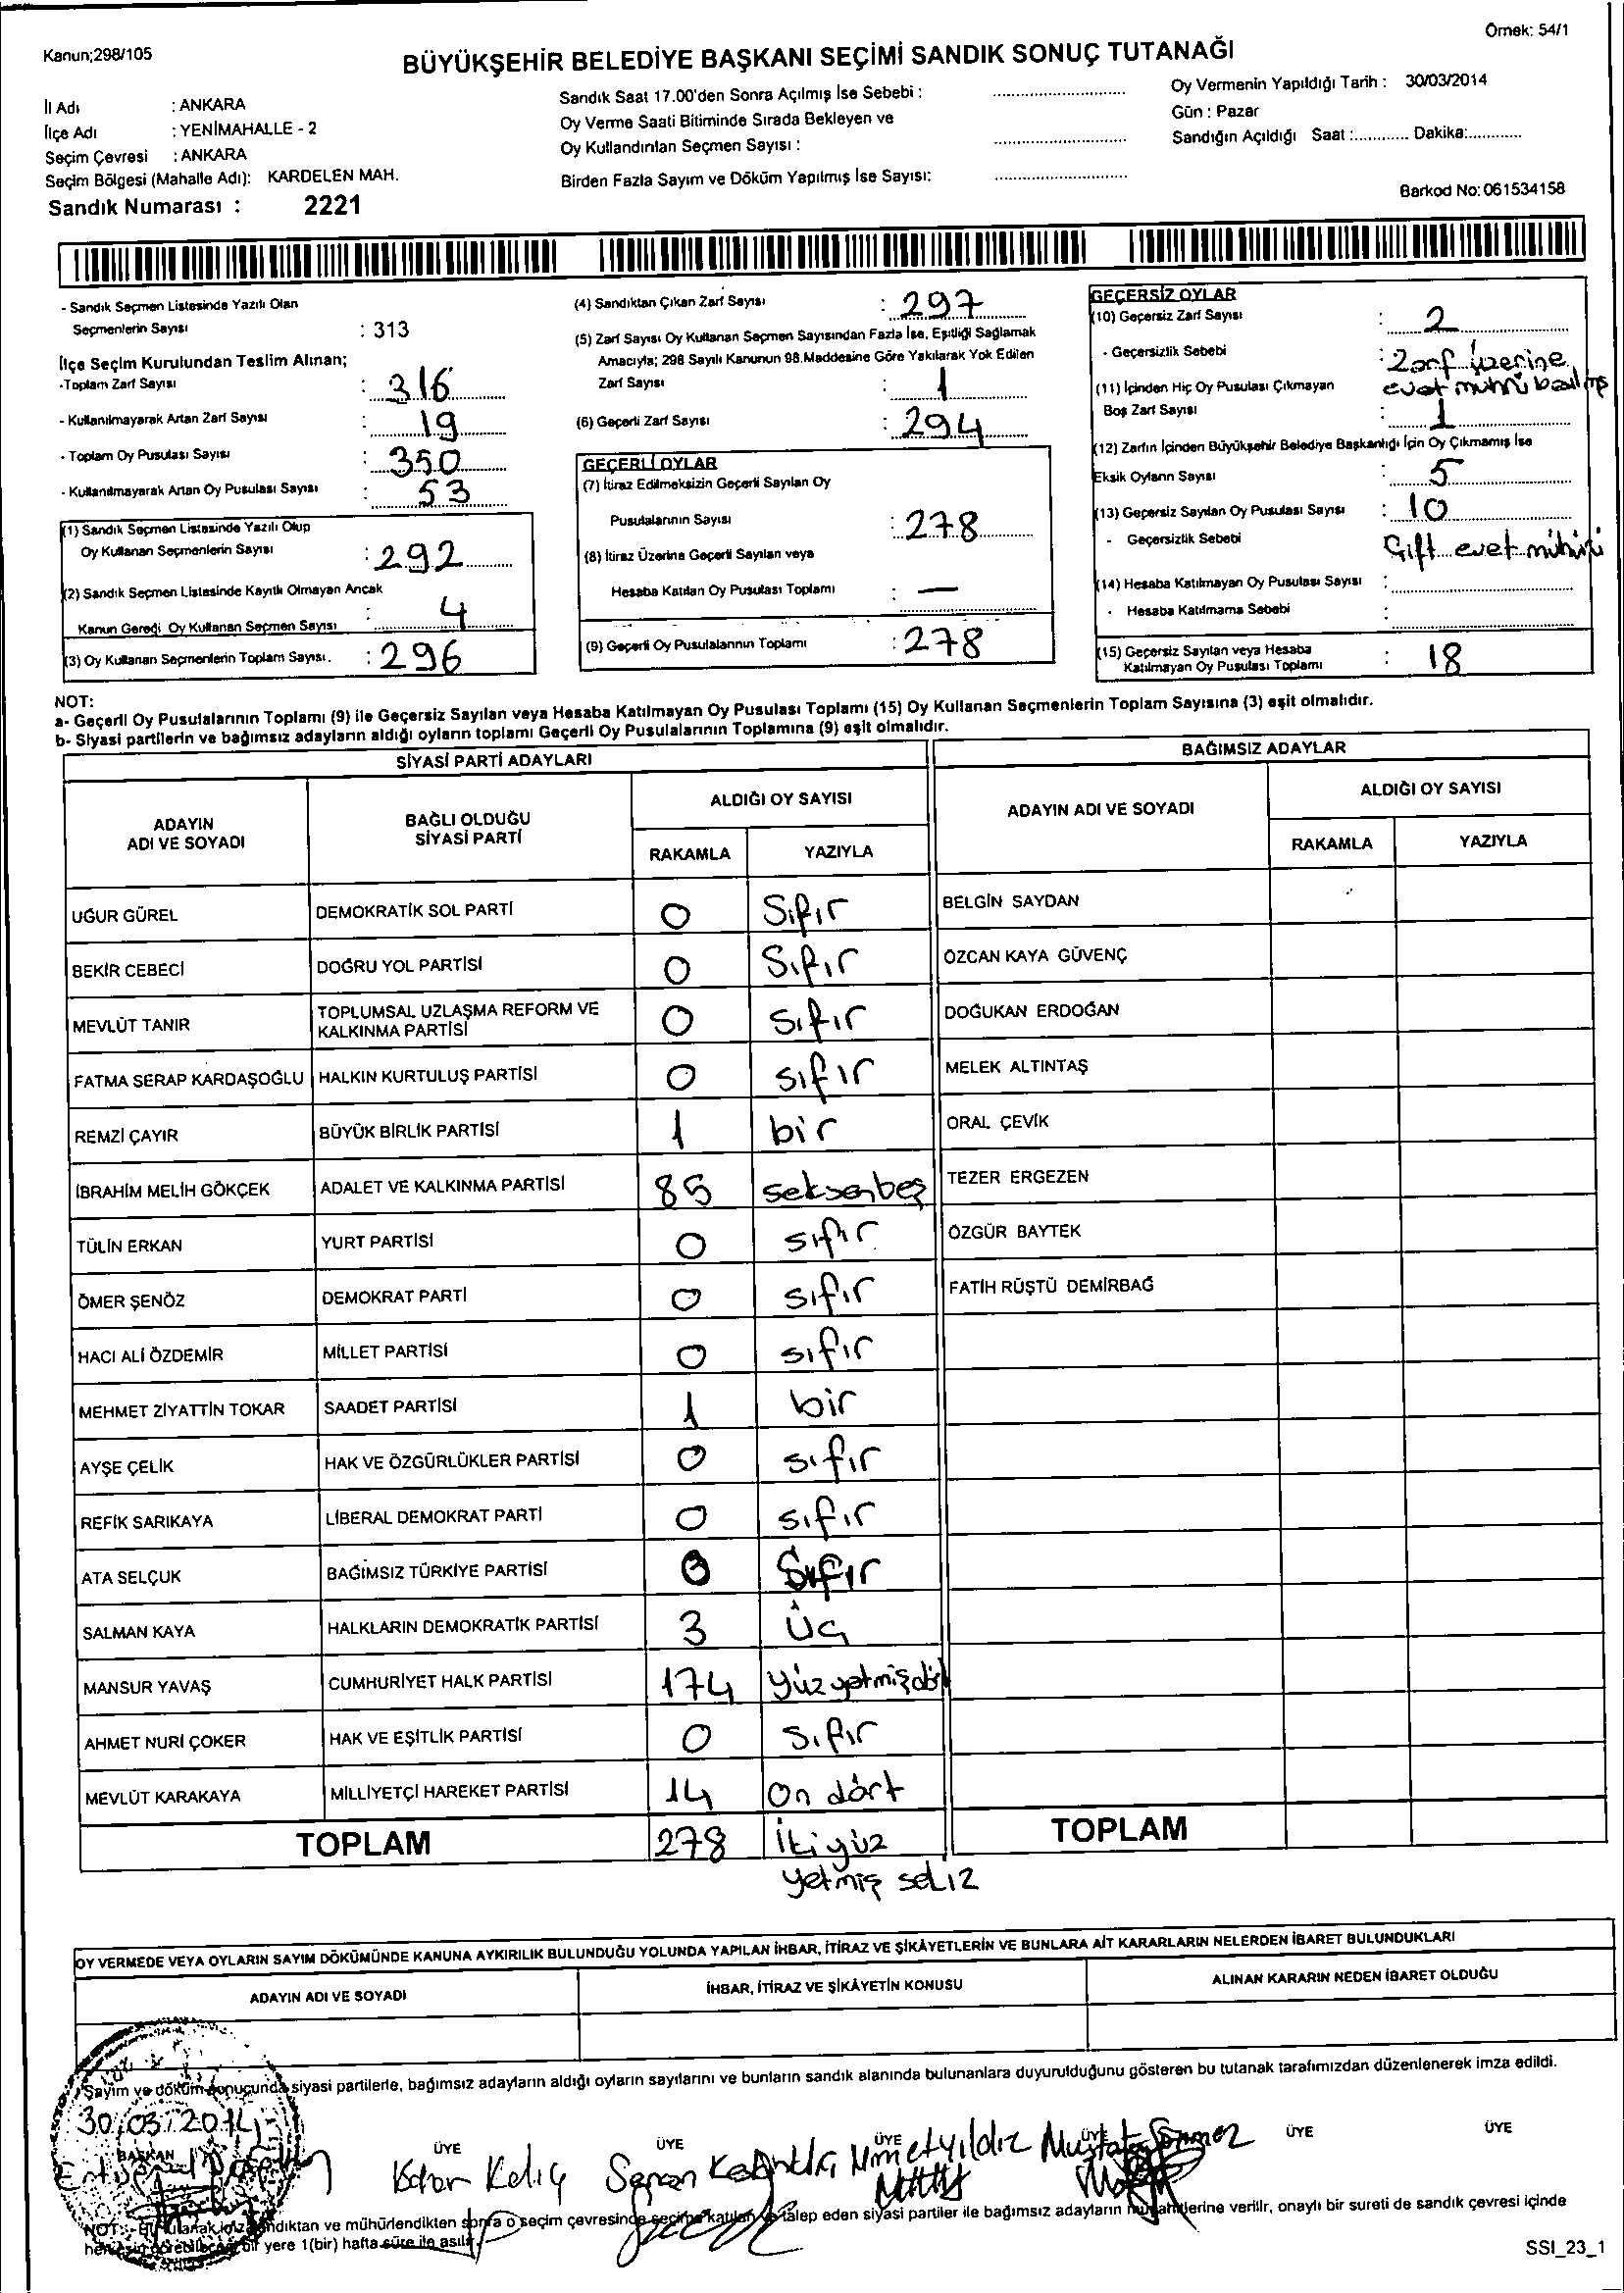 Kanun;298/105
Örnek: 54/1
BÜYÜKŞEHİR BELEDİYE BAŞKANI SEÇİMİ SANDIK SONUÇ TUTANAĞI
İl Adı : ANKARA
İlçe Adı : YENİMAHALLE - 2
Seçim Çevresi : ANKARA
Seçim Bölgesi (Mahalle Adı): KARDELEN MAH.
Sandık Numarası : 2221
Sandık Saat 17.00'den Sonra Açılmış İse Sebebi :
Oy Verme Saati Bitiminde Sırada Bekleyen ve
Oy Kullandırılan Seçmen Sayısı :
Birden Fazla Sayım ve Döküm Yapılmış İse Sayısı:
Oy Vermenin Yapıldığı Tarih : 30/03/2014
Gün : Pazar
Sandığın Açıldığı Saat :............ Dakika:............
Barkod No: 061534158
- Sandık Seçmen Listesinde Yazılı Olan
Seçmenlerin Sayısı : 313
İlçe Seçim Kurulundan Teslim Alınan;
-Toplam Zarf Sayısı : 316
- Kullanılmayarak Artan Zarf Sayısı : 19
- Toplam Oy Pusulası Sayısı : 350
- Kullanılmayarak Artan Oy Pusulası Sayısı : 53
(1) Sandık Seçmen Listesinde Yazılı Olup
Oy Kullanan Seçmenlerin Sayısı : 292
(2) Sandık Seçmen Listesinde Kayıtlı Olmayan Ancak
Kanun Gereği Oy Kullanan Seçmen Sayısı : 4
(3) Oy Kullanan Seçmenlerin Toplam Sayısı. : 296
(4) Sandıktan Çıkan Zarf Sayısı : 297
(5) Zarf Sayısı Oy Kullanan Seçmen Sayısından Fazla İse, Eşitliği Sağlamak
Amacıyla; 298 Sayılı Kanunun 98.Maddesine Göre Yakılarak Yok Edilen
Zarf Sayısı : 1
(6) Geçerli Zarf Sayısı : 294
GEÇERLİ OYLAR
(7) İtiraz Edilmeksizin Geçerli Sayılan Oy
Pusulalarının Sayısı : 278
(8) İtiraz Üzerine Geçerli Sayılan veya
Hesaba Katılan Oy Pusulası Toplamı : —
(9) Geçerli Oy Pusulalarının Toplamı : 278
GEÇERSİZ OYLAR
(10) Geçersiz Zarf Sayısı : 2
- Geçersizlik Sebebi : Zarf üzerine
evet mührü basılmış
(11) İçinden Hiç Oy Pusulası Çıkmayan
Boş Zarf Sayısı : 1
(12) Zarfın İçinden Büyükşehir Belediye Başkanlığı İçin Oy Çıkmamış İse
Eksik Oyların Sayısı : 5
(13) Geçersiz Sayılan Oy Pusulası Sayısı : 10
- Geçersizlik Sebebi Çift evet mührü
(14) Hesaba Katılmayan Oy Pusulası Sayısı :
- Hesaba Katılmama Sebebi :
(15) Geçersiz Sayılan veya Hesaba
Katılmayan Oy Pusulası Toplamı : 18
NOT:
a- Geçerli Oy Pusulalarının Toplamı (9) ile Geçersiz Sayılan veya Hesaba Katılmayan Oy Pusulası Toplamı (15) Oy Kullanan Seçmenlerin Toplam Sayısına (3) eşit olmalıdır.
b- Siyasi partilerin ve bağımsız adayların aldığı oyların toplamı Geçerli Oy Pusulalarının Toplamına (9) eşit olmalıdır.
SİYASİ PARTİ ADAYLARI
BAĞIMSIZ ADAYLAR
ADAYIN ADI VE SOYADI
BAĞLI OLDUĞU SİYASİ PARTİ
ALDIĞI OY SAYISI
RAKAMLA YAZIYLA
ADAYIN ADI VE SOYADI
ALDIĞI OY SAYISI
RAKAMLA YAZIYLA
UĞUR GÜREL DEMOKRATİK SOL PARTİ 0 Sıfır BELGİN SAYDAN
BEKİR CEBECİ DOĞRU YOL PARTİSİ 0 Sıfır ÖZCAN KAYA GÜVENÇ
MEVLÜT TANIR TOPLUMSAL UZLAŞMA REFORM VE KALKINMA PARTİSİ 0 sıfır DOĞUKAN ERDOĞAN
FATMA SERAP KARDAŞOĞLU HALKIN KURTULUŞ PARTİSİ 0 sıfır MELEK ALTINTAŞ
REMZİ ÇAYIR BÜYÜK BİRLİK PARTİSİ 1 bir ORAL ÇEVİK
İBRAHİM MELİH GÖKÇEK ADALET VE KALKINMA PARTİSİ 85 seksenbeş TEZER ERGEZEN
TÜLİN ERKAN YURT PARTİSİ 0 sıfır ÖZGÜR BAYTEK
ÖMER ŞENÖZ DEMOKRAT PARTİ 0 sıfır FATİH RÜŞTÜ DEMİRBAĞ
HACI ALİ ÖZDEMİR MİLLET PARTİSİ 0 sıfır
MEHMET ZİYATTİN TOKAR SAADET PARTİSİ 1 bir
AYŞE ÇELİK HAK VE ÖZGÜRLÜKLER PARTİSİ 0 sıfır
REFİK SARIKAYA LİBERAL DEMOKRAT PARTİ 0 sıfır
ATA SELÇUK BAĞIMSIZ TÜRKİYE PARTİSİ 0 Sıfır
SALMAN KAYA HALKLARIN DEMOKRATİK PARTİSİ 3 üç
MANSUR YAVAŞ CUMHURİYET HALK PARTİSİ 174 yüzyetmişdört
AHMET NURİ ÇOKER HAK VE EŞİTLİK PARTİSİ 0 Sıfır
MEVLÜT KARAKAYA MİLLİYETÇİ HAREKET PARTİSİ 14 On dört
TOPLAM 278 İkiyüz TOPLAM
yetmiş sekiz
OY VERMEDE VEYA OYLARIN SAYIM DÖKÜMÜNDE KANUNA AYKIRILIK BULUNDUĞU YOLUNDA YAPILAN İHBAR, İTİRAZ VE ŞİKÂYETLERİN VE BUNLARA AİT KARARLARIN NELERDEN İBARET BULUNDUKLARI
ADAYIN ADI VE SOYADI İHBAR, İTİRAZ VE ŞİKÂYETİN KONUSU ALINAN KARARIN NEDEN İBARET OLDUĞU
Sayım ve döküm sonucunda siyasi partilerle, bağımsız adayların aldığı oyların sayılarını ve bunların sandık alanında bulunanlara duyurulduğunu gösteren bu tutanak tarafımızdan düzenlenerek imza edildi.
30/03/2014
BAŞKAN ÜYE ÜYE ÜYE ÜYE ÜYE ÜYE
NOT:- Bu tutanak imzalandıktan ve mühürlendikten sonra o seçim çevresinde seçime katılan ve talep eden siyasi partiler ile bağımsız adayların müşahitlerine verilir, onaylı bir sureti de sandık çevresi içinde
herkesin görebileceği bir yere 1(bir) hafta süre ile asılır.
SSI_23_1